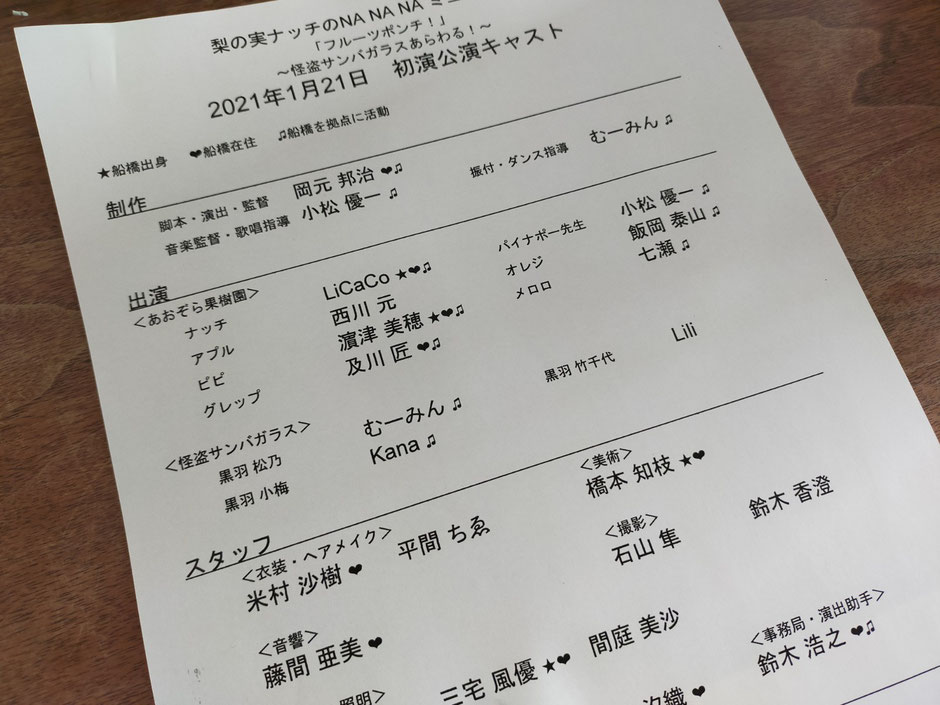 梨の実ナッチのNA NA NA ミュ
「フルーツポンチ!」
~怪盗サンバガラスあらわる!~
2021年1月21日 初演公演キャスト
★船橋出身 ❤船橋在住 ♫船橋を拠点に活動
制作
脚本・演出・監督 岡元 邦治 ❤♫ 振付・ダンス指導 むーみん ♫
音楽監督・歌唱指導 小松 優一 ♫
出演
<あおぞら果樹園>
ナッチ LiCaCo ★❤♫ パイナポー先生 小松 優一 ♫
アプル 西川 元 オレジ 飯岡 泰山 ♫
ピピ 濵津 美穂 ★❤♫ メロロ 七瀬 ♫
グレップ 及川 匠 ❤♫
<怪盗サンバガラス>
黒羽 松乃 むーみん ♫ 黒羽 竹千代 Lili
黒羽 小梅 Kana ♫
スタッフ
<衣装・ヘアメイク> <美術>
米村 沙樹 ❤ 平間 ちゑ 橋本 知枝 ★❤
<音響> <撮影>
藤間 亜美 ❤ 石山 隼 鈴木 香澄
照明> <事務局・演出助手>
三宅 風優 ★❤ 間庭 美沙 鈴木 浩之 ❤♫
汐織 ❤